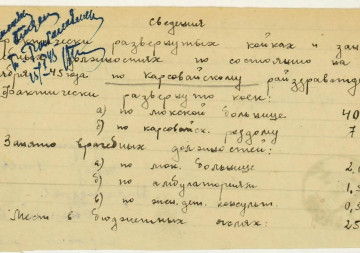 Сведения
фактически развернутых койках и зан
должностях по состоянию на
1945 года по Карсовайскому райздравотде
Фактически развернуто коек:
а) по люкской больнице 40
б) по карсовайск. роддому 7
Занято врачебных должностей:
а) по люк. больнице 2,
б) по амбулаториям 1,
в) по жен. дет. консульт. 0,5
Мест в бюджетных яслях: 25